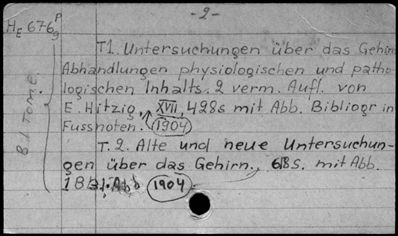 -2-
HE 676 P/g
T1. Untersuchungen über das Gehirn
Abhandlungen physiologischen und patho-
logischen Inhalts. 2 verm. Aufl. von
E. Hitzig, XVII, 428s mit Abb. Bibliogr in
Fussnoten. 1904
T. 2. Alte und neue Untersuchun-
gen über das Gehirn., 618s. mit Abb.
1904
В 2 Тома.